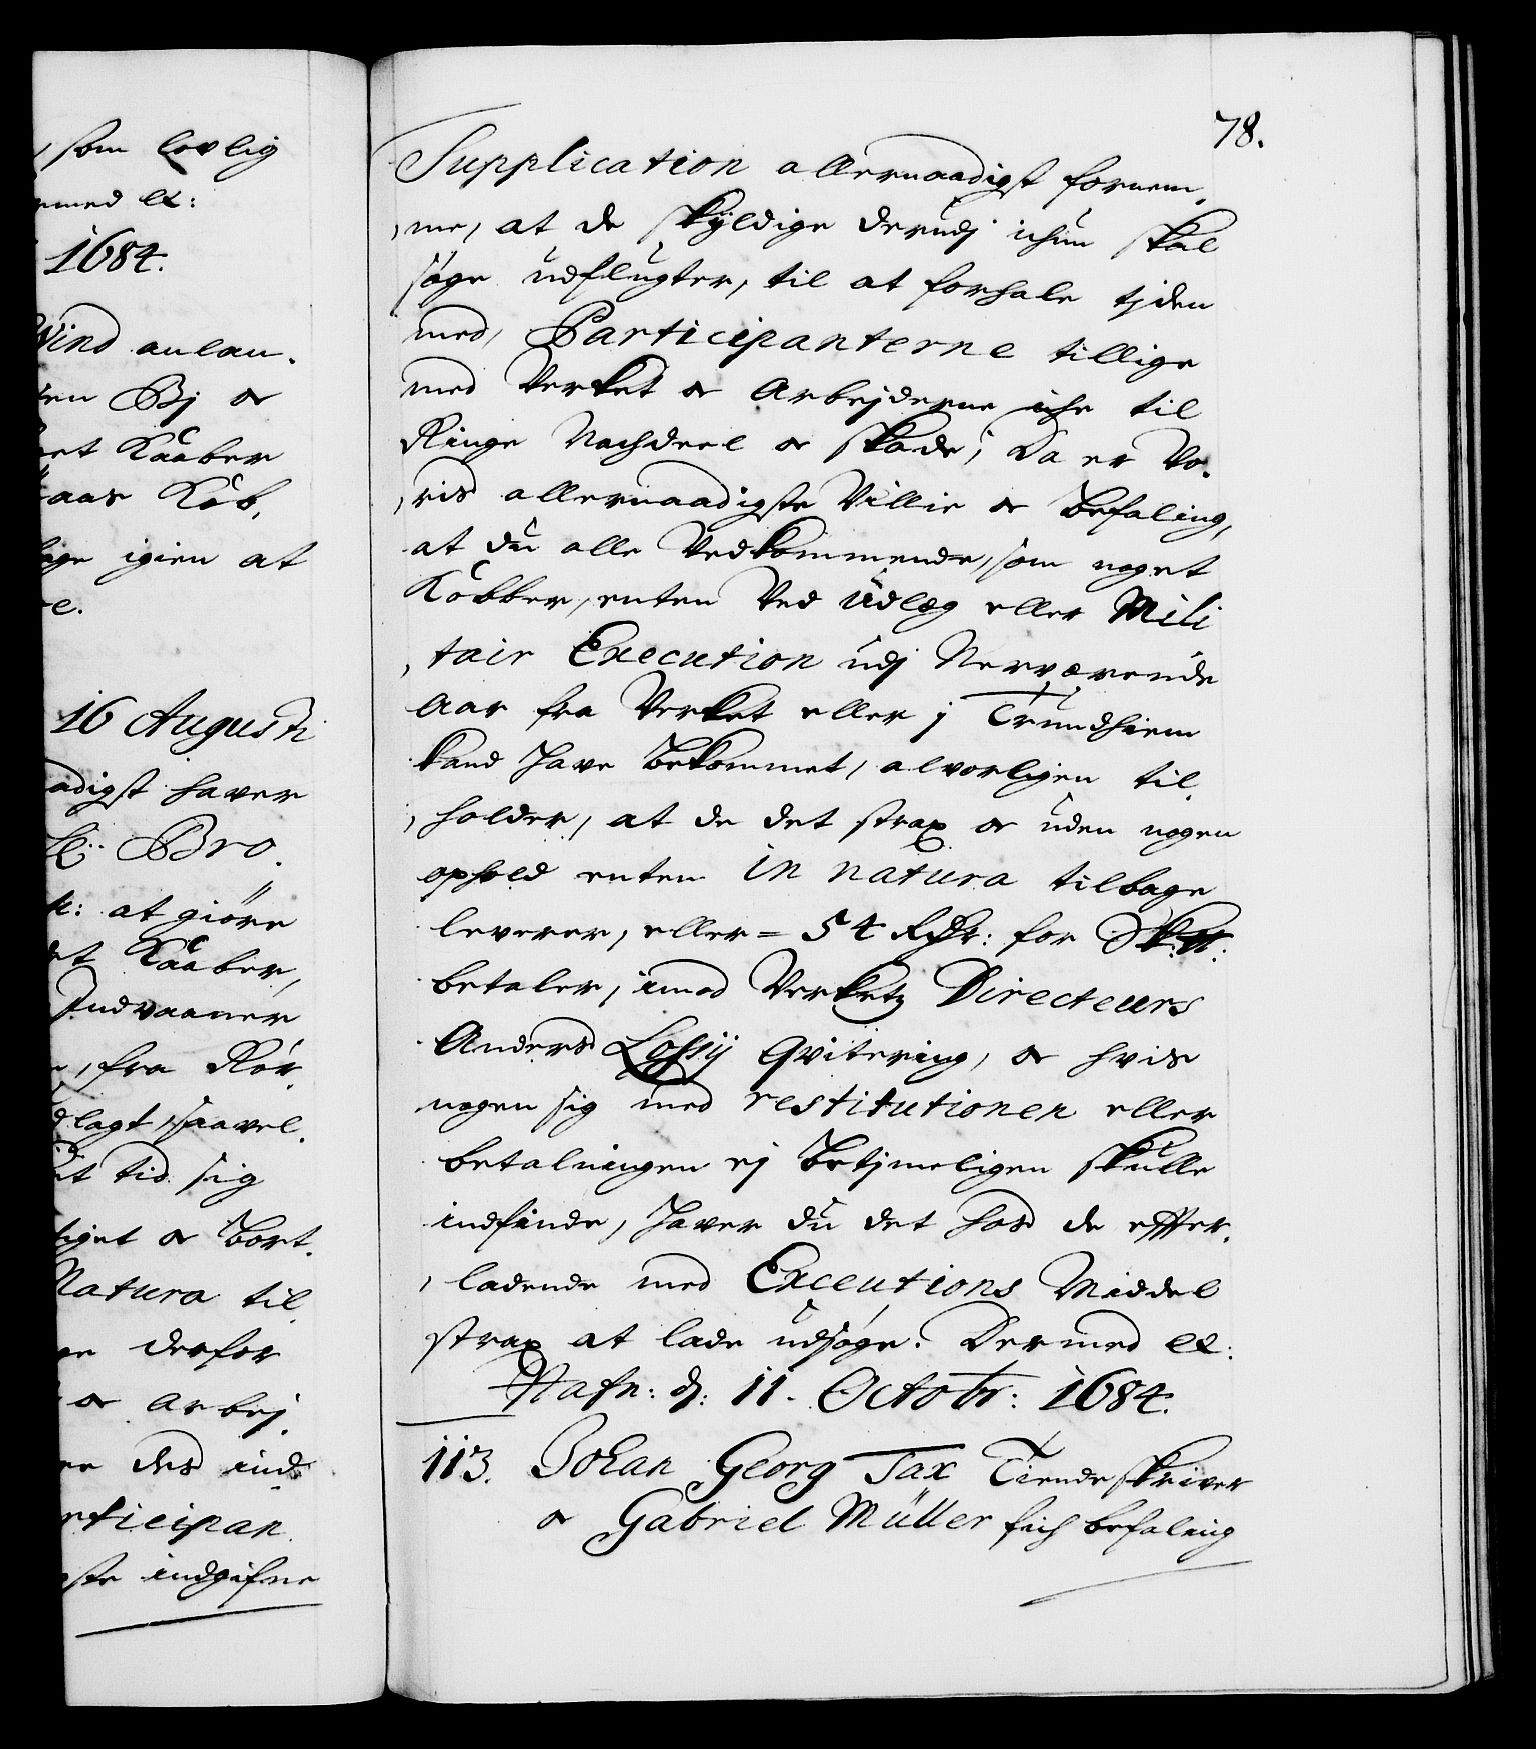 som lovlig
rmed etc:
1684.
Wind anlan-
Bÿ oc
et Kaaber
aar Kob,
igien at
16 Augusti
adigst haver
Bro.
at giöre
et Kaaber,
Indvaaner
, fra Rör,
lagt, saavel,
tid sig
oc bort,
Natura til,
derfor
oc arbej,
des ind,
rticipan,
ste indgifne
78.
Supplication allernaadigst fornem,
,me, at de skÿldige derudj ichun skal
söge udflugter, til at forhale tjden
med, Participanterne tillige
med Verket oc Arbejderne iche til
Ringe Nachdeel oc skade, Da er Vo,
,ris allernaadigste Villie oc Befaling,
at du alle Vedkommende, som noget
Kobber, enten Ved Udlæg eller Mili
,tair Execution udj Nerværende
Aar fra Verket eller j Trundhiem
kand have bekommet, alvorligen til,
,holder, at de det strax oc uden nogen
ophold enten in natura tilbage
leverer, eller = 54 Rdr: for Sk:tt:
betaler, imod Verketz Directeurs
Anders Lossij Qvitering, oc hvis
nogen sig med restitutionen eller
betalningen ej betjmeligen skulle
indfinde, haver du det hos de effter,
,ladende med Executions Middel
strax at lade udsøge. Dermed etc:
Hafn: d: 11. Octobr: 1684.
113. Johan Georg Tax Tiendeskriver
oc Gabriel Müller fich befaling